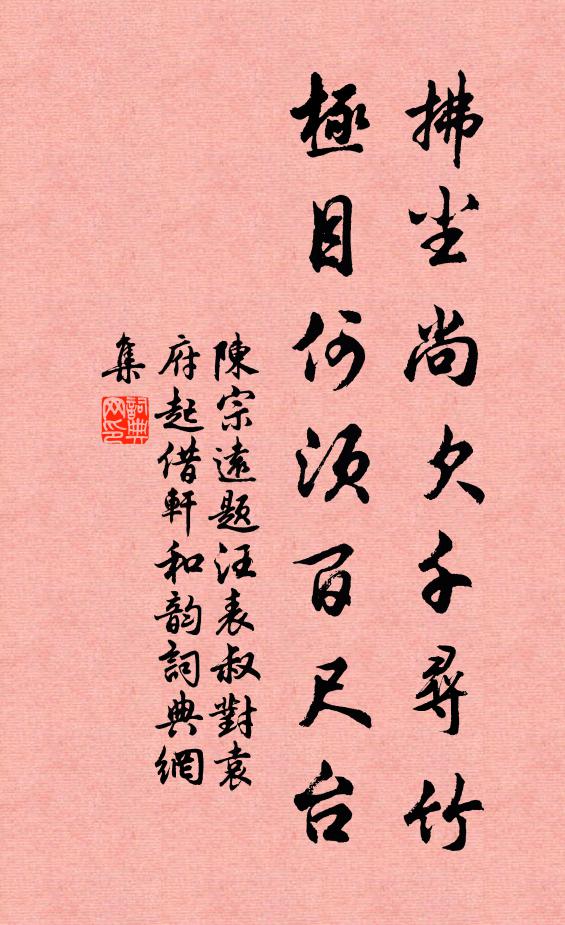 拂尘尚欠千尋竹
極目何須百尺台
陳宗遠題汪表叔對袁
府起借軒和韵詞典網
集
詞典
网印